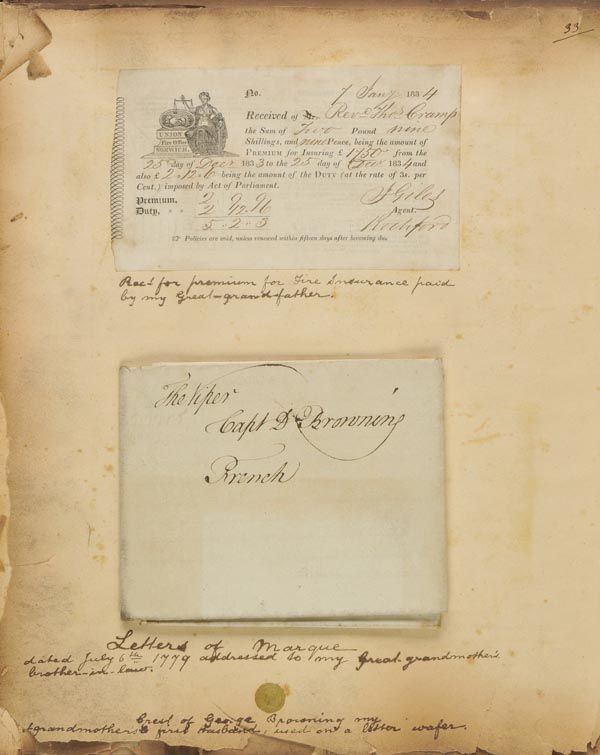 33
No. 7 Jany 1834
UNION
Fire Office
NORWICH.
Received of Revd Thos Cramp
the Sum of Two Pound nine
Shillings, and nine Pence, being the amount of
PREMIUM for Insuring £ 1750 from the
25 day of Decr 1833 to the 25 day of 1834 and
also £ 2.12.6 being the amount of the DUTY (at the rate of 3s. per
Cent.) imposed by Act of Parliament.
Premium. 2 9 9
Duty, 2 12 6
5 2 3
J Giles
Agent.
Rochford
Policies are void, unless renewed within fifteen days after becoming due.
Recd for premium for Fire Insurance paid
by my Great-grandfather.
The Viper
Capt Browning
French
Letters of Marque
dated July 6th 1779 addressed to my Great-grandmother's
brother-in-law.
Crest of George Browning my
gt grandmother's first husband, used on a letter wafer.